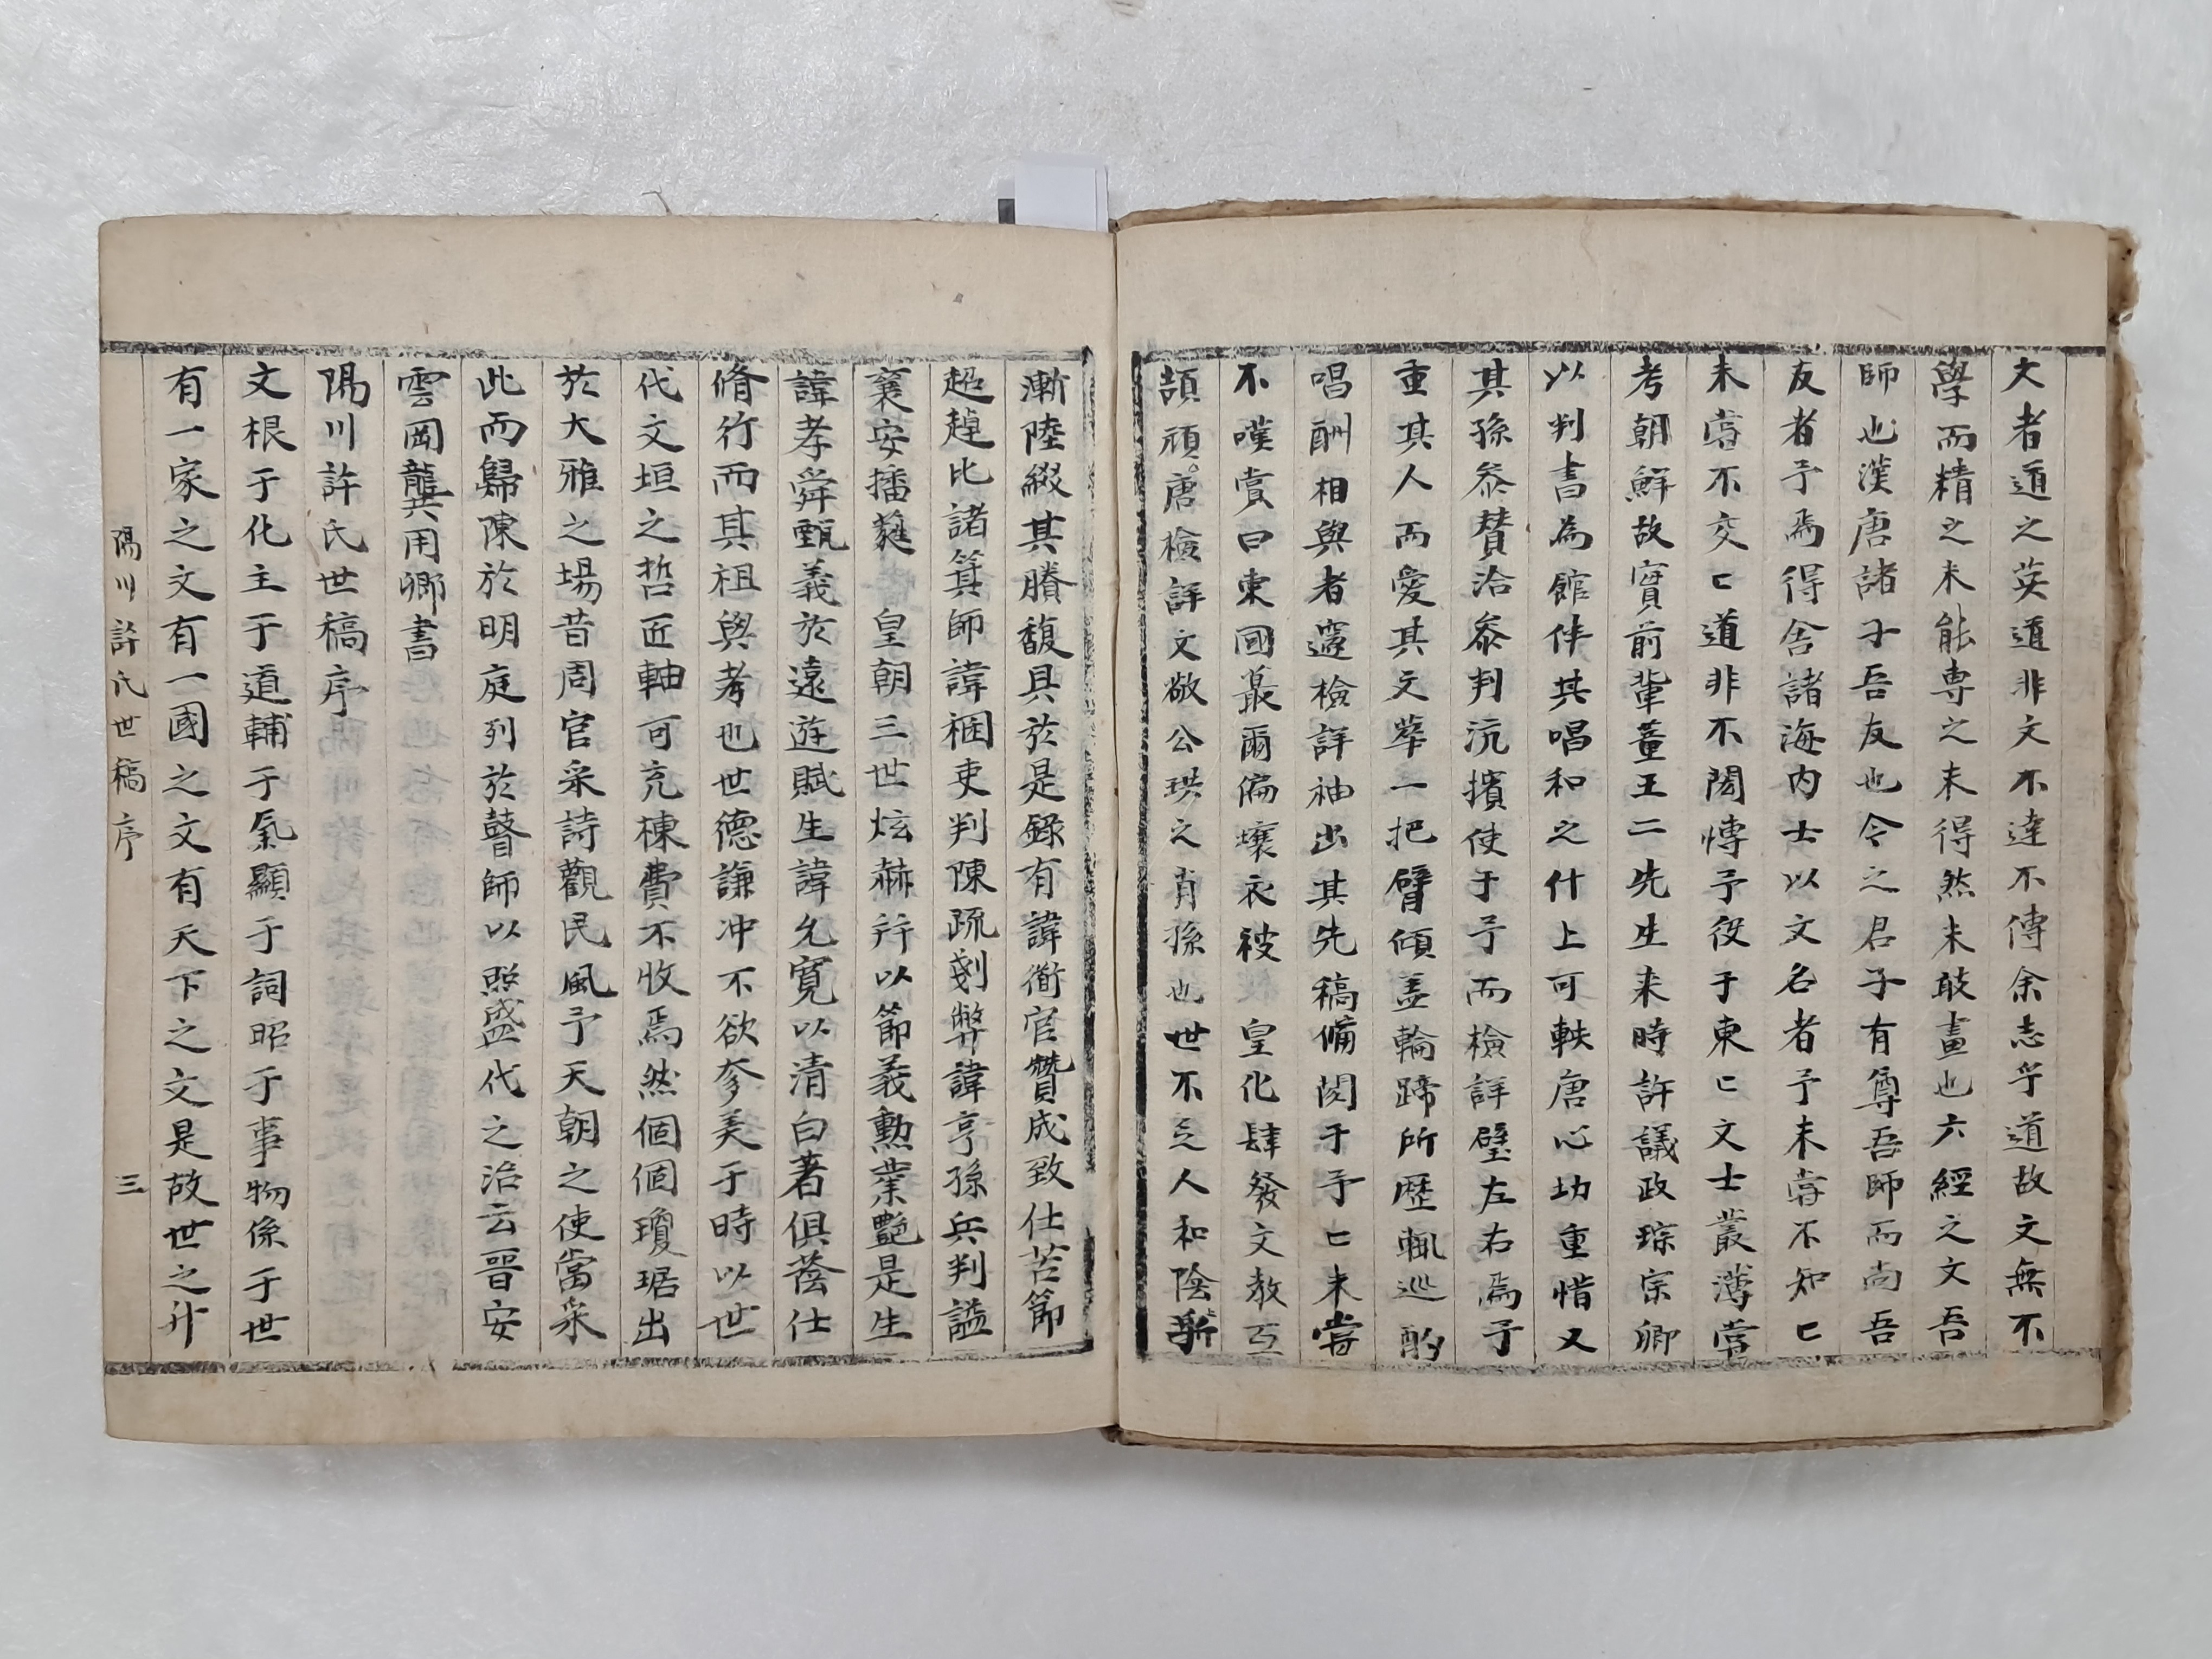 文者道之英道非文不達不傳余志乎道故文無不
學而精之未能專之未得然未敢畫也六經之文吾
師也漢唐諸子吾友也今之君子有尊吾師而尚吾
友者予焉得舍諸海内士以文名者予未嘗不知匕
未嘗不交匕道非不閎慱予役于東匕文士叢薄嘗
考朝鮮故實前輩董王二先生来時許議政琮宗卿
以判書為館伴其唱和之什上可軼唐心切重惜又
其孫叅賛洽叅判沆擯使于予而檢詳㻶左右焉予
重其人而愛其文華一把臂傾盖輪蹄所歷輒巡酌
唱酬相與者遽檢詳袖出其先稿俻閱于予匕未嘗
不嘆賞曰東國蕞爾偏壤衣被 皇化肆發文教亙
頡頑唐檢詳文敬公珙之肖孫也世不乏人和陰斬
漸陸綴其賸馥具於是錄有諱衜官贊成致仕苦節
超趠比諸箕師諱稇吏判陳疏剗弊諱亨孫兵判謚
襄安播蕤 皇朝三世炫赫并以節義勲業艶是生
諱孝舜甄義於遠遊賦生諱允寬以清白著俱蔭仕
脩行而其祖與考也世德謙冲不欲奓美于時以世
代文垣之哲匠軸可充棟費不收焉然個個瓊琚出
於大雅之場昔周官采詩觀民風予天朝之使當采
此而歸陳於明庭列於瞽師以熙盛代之治云晋安
雲岡龔用卿書
陽川許氏世稿序
文根于化主于道輔于氣顯于詞昭于事物係于世
有一家之文有一國之文有天下之文是故世之升
陽川許氏世稿序 三